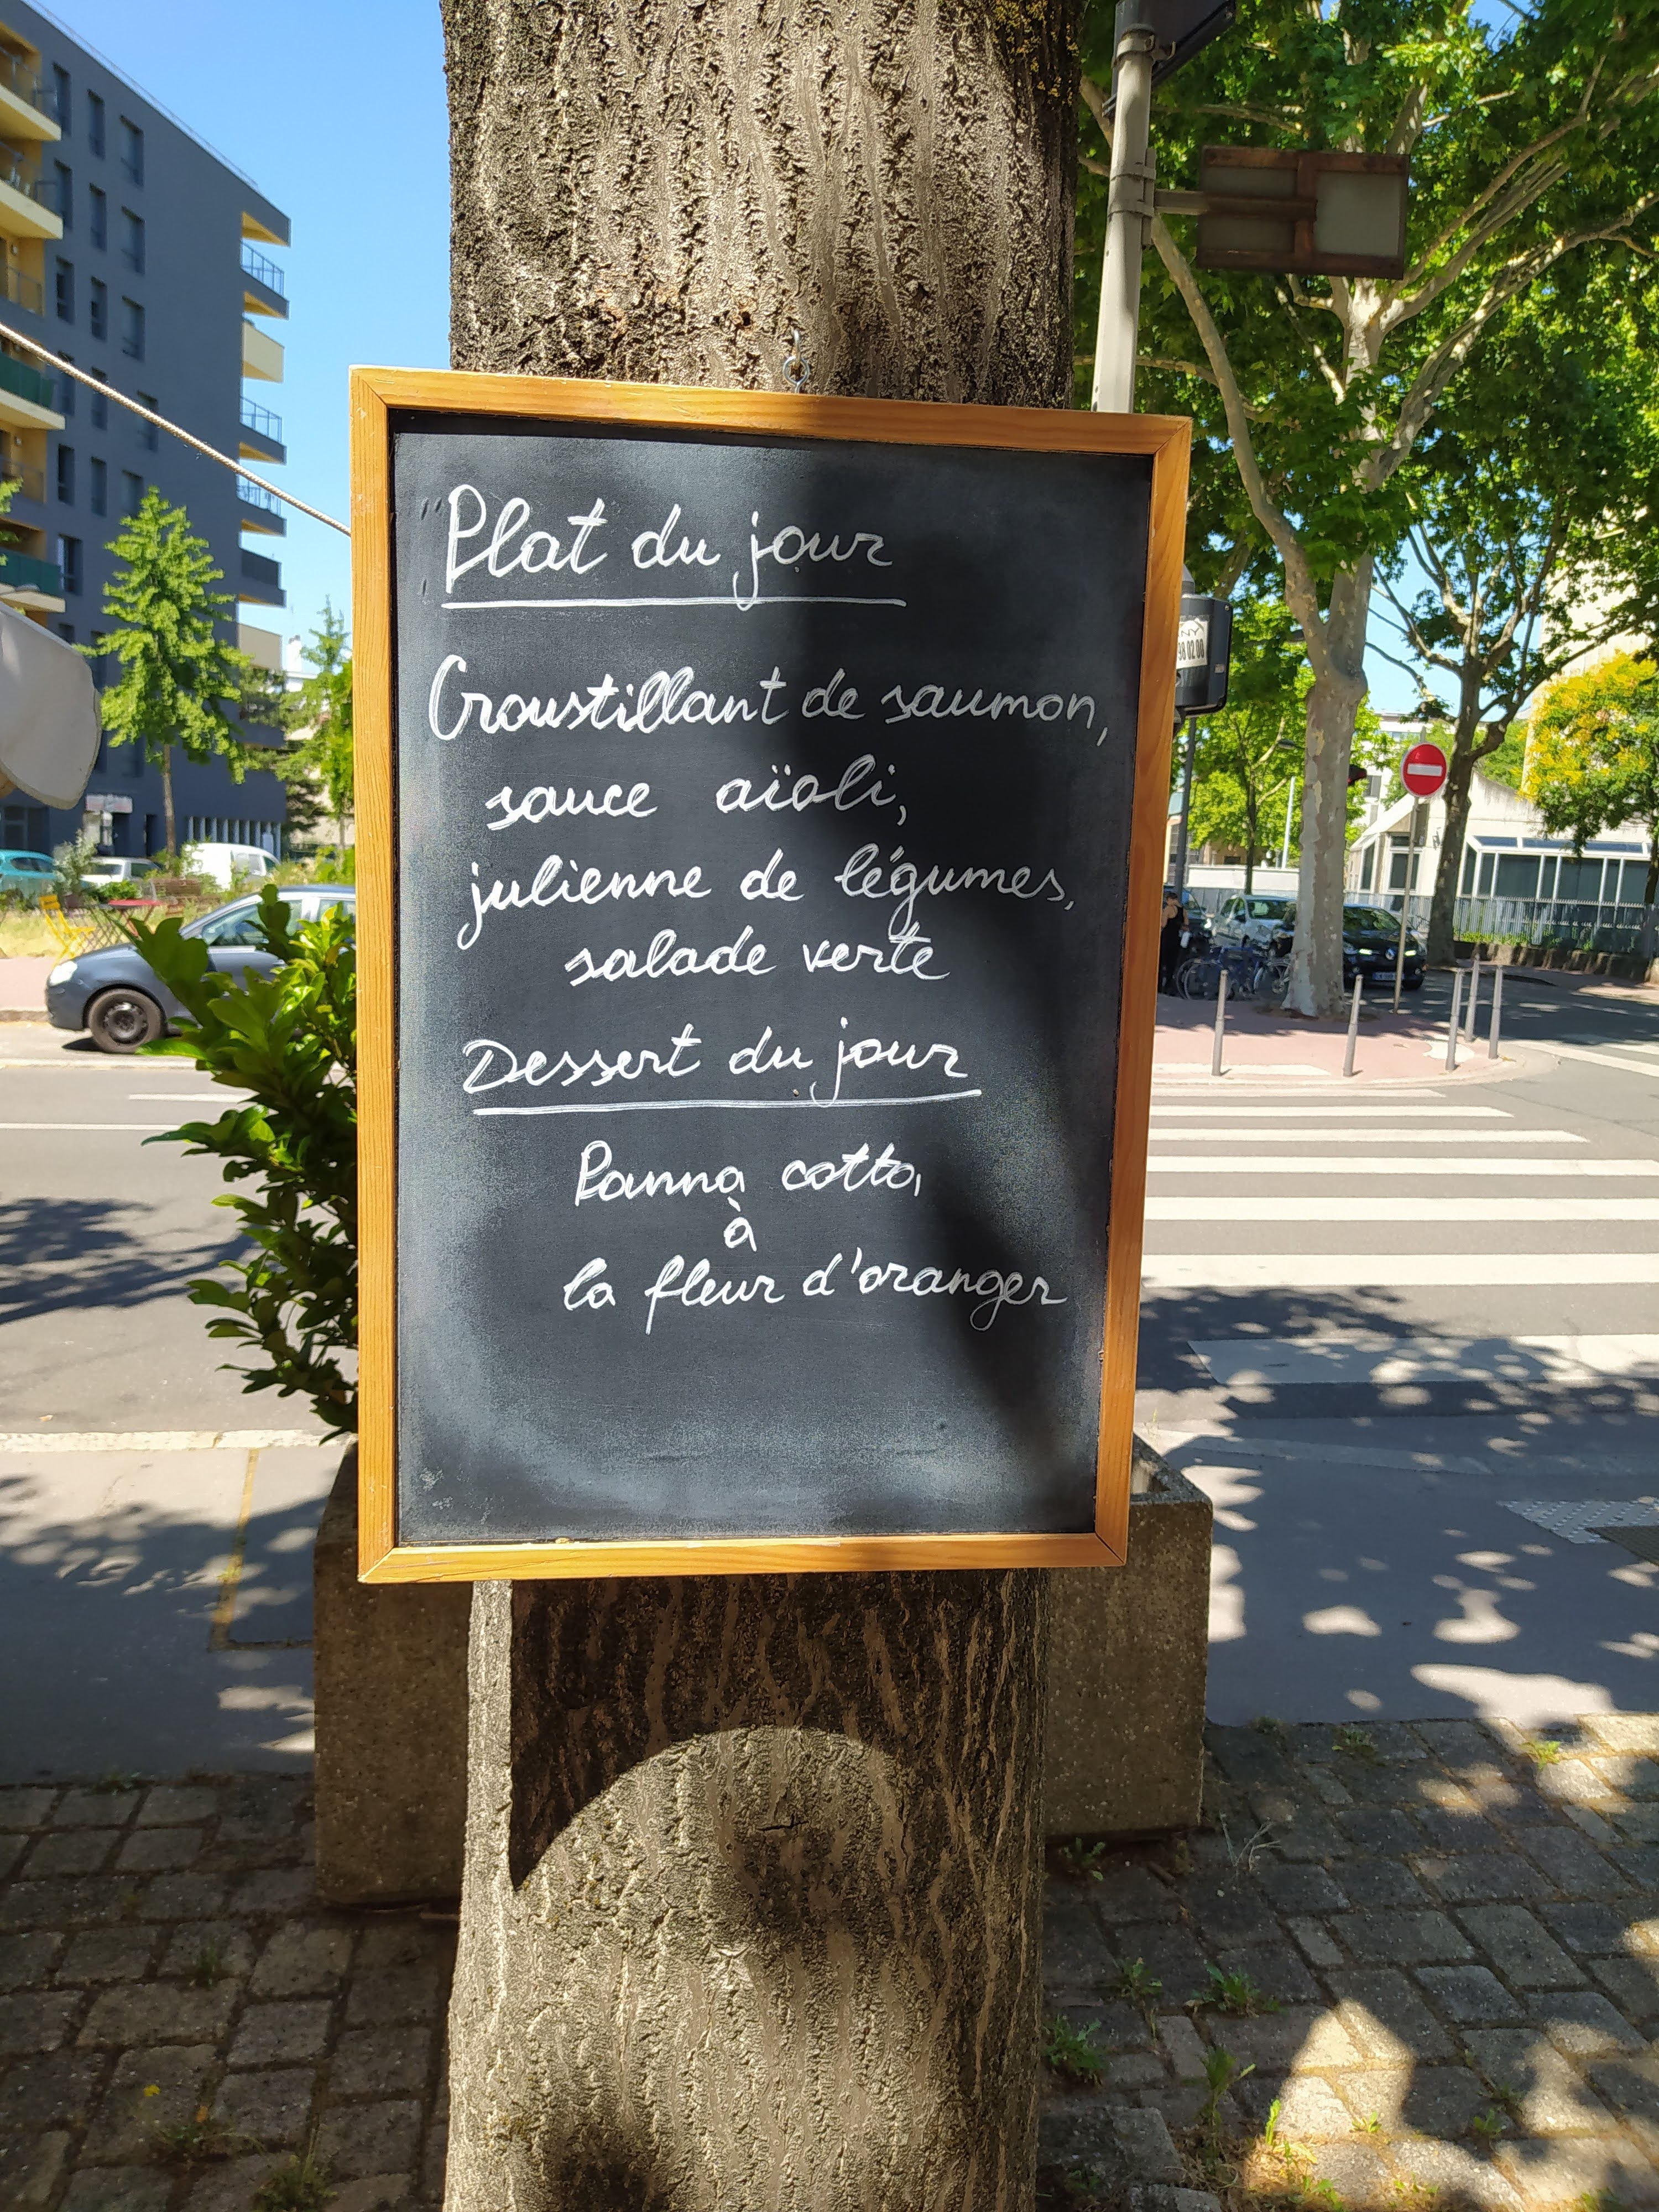 Plat du jour
Croustillant de saumon,
sauce aïoli,
julienne de légumes,
salade verte
Dessert du jour
Panna cotta,
à
la fleur d'oranger
98 02 08